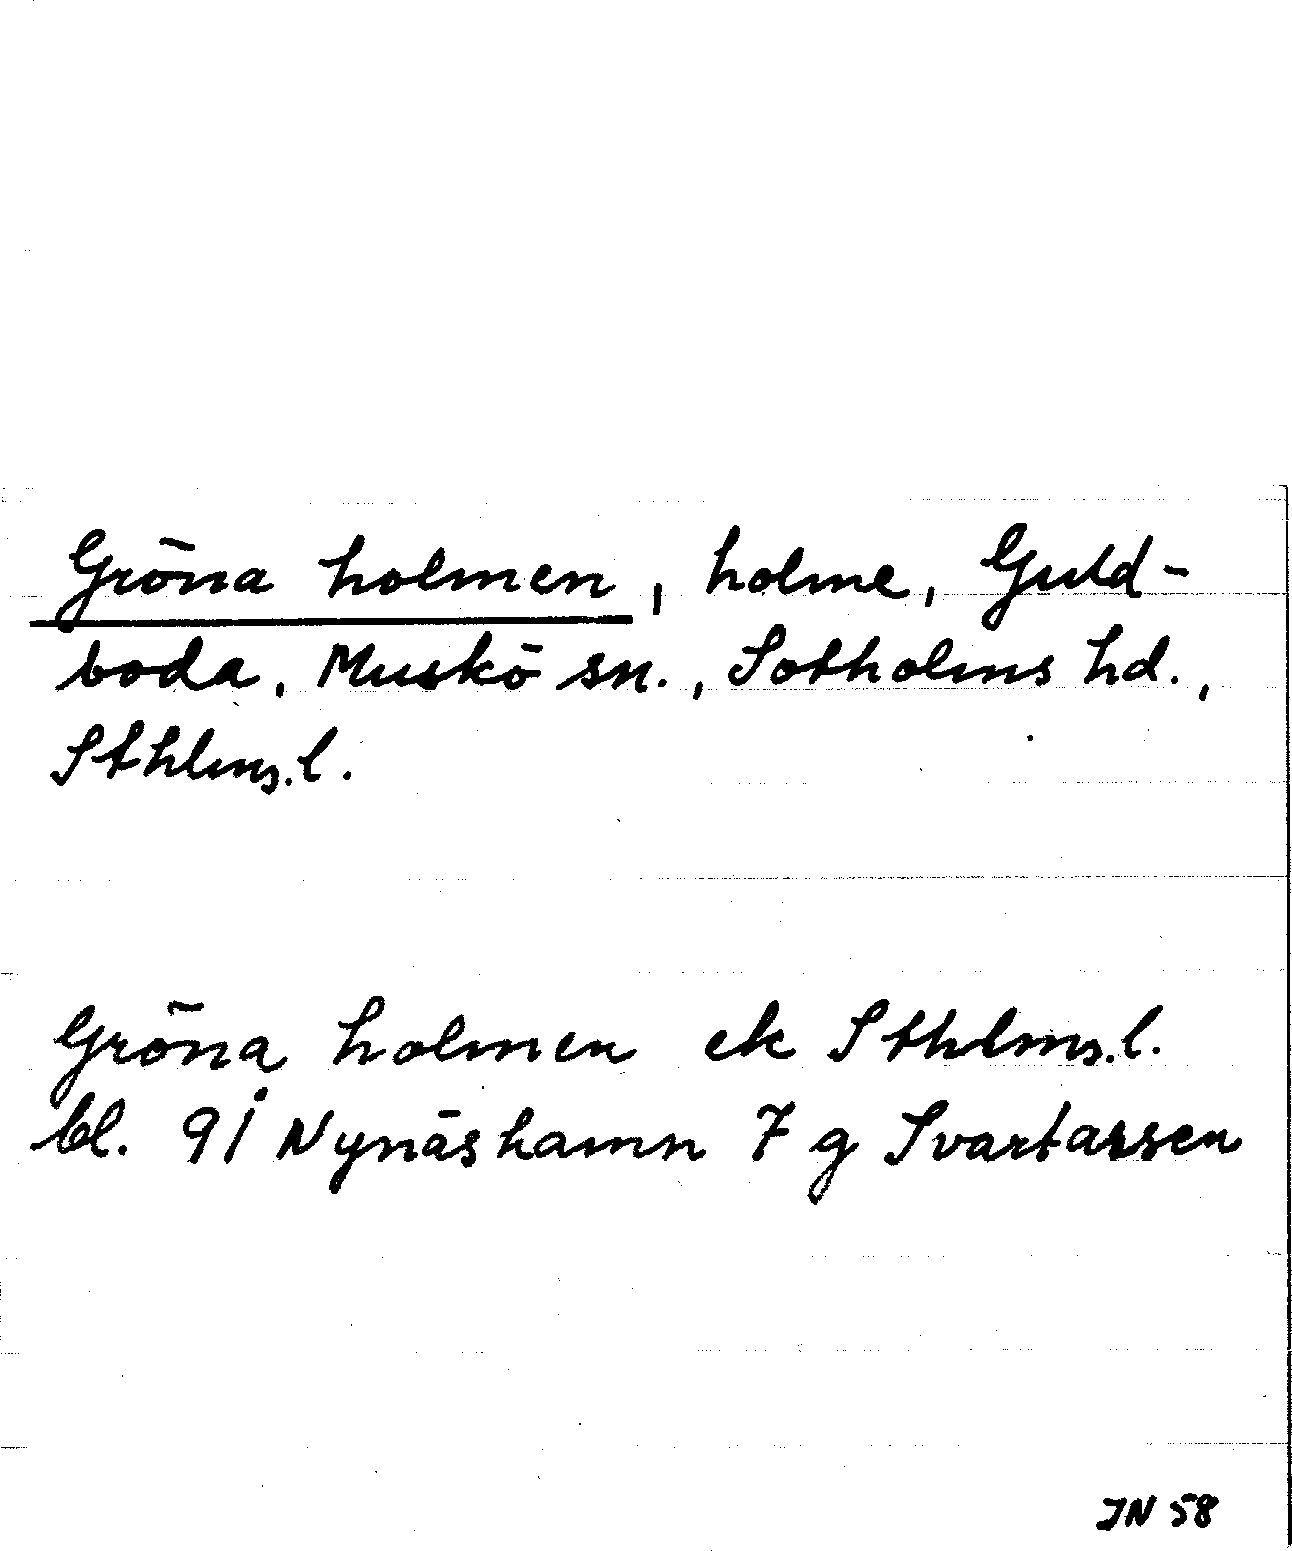 Gröna holmen, holme, Guld-
boda, Muskö sn., Sotholms hd.,
Sthlms.l.
Gröna holmen ek Sthlms.l.
bl. 91 Nynäshamn 7 g Svartarsen
JN 58